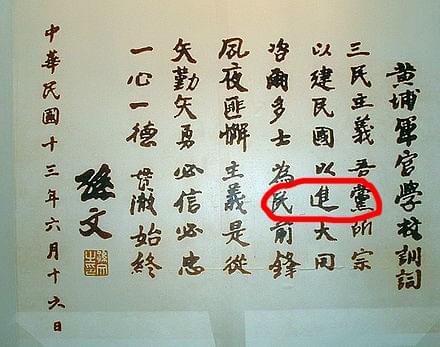 黃埔軍官學校訓詞
三民主義 吾黨所宗
以建民國 以進大同
咨爾多士 為民前鋒
夙夜匪懈 主義是從
矢勤矢勇 必信必忠
一心一德 貫徹始終
孫文
孫文之印
中華民國十三年六月十六日